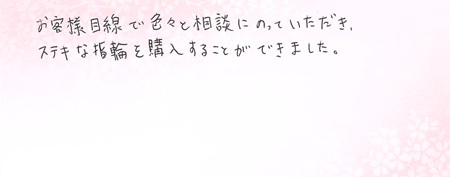 お客様目線で色々と相談にのっていただき、
ステキな指輪を購入することができました。